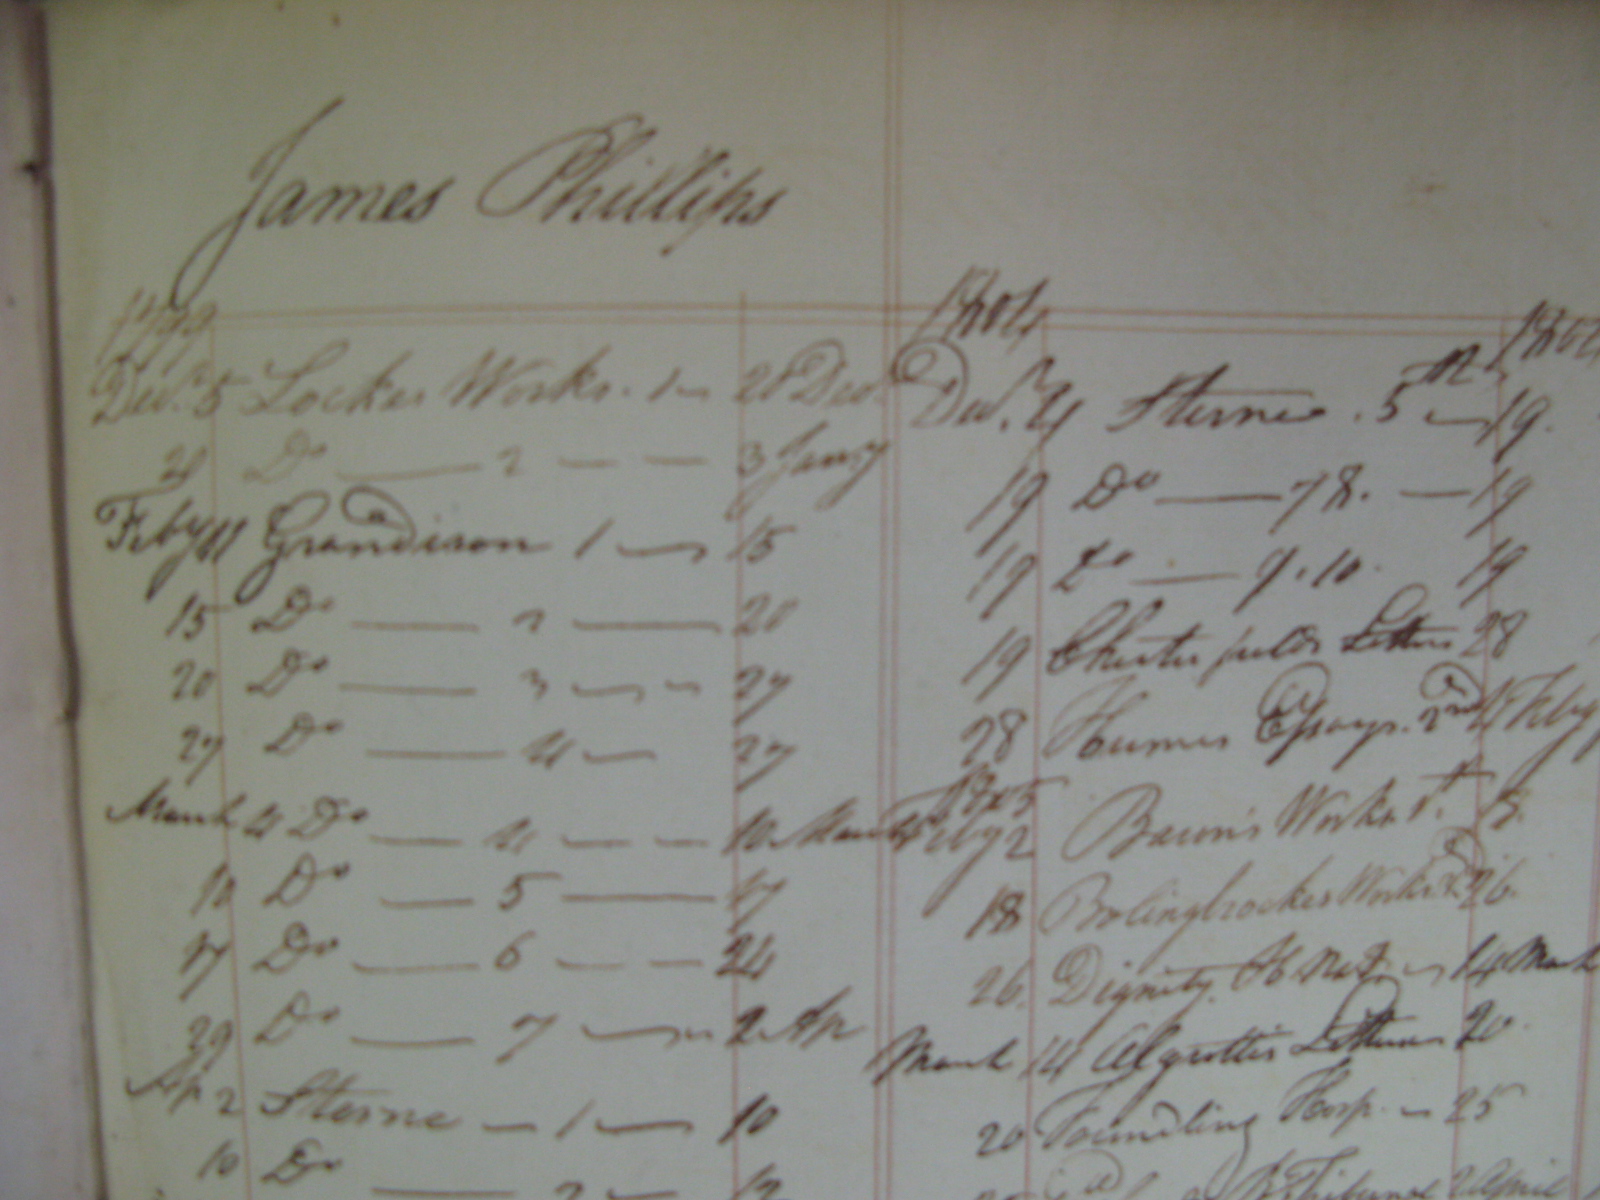 James Phillips
1799
Decr. 5 Lockes Works. 1 20 Decr.
20 Do 2 3 Jany
Feby 11 Grandison 1 15
15 Do 2 20
20 Do 3 27
27 Do 4 27
March 4 Do 4 10 March
10 Do 5 17
17 Do 6 24
29 Do 7 2 Ap
Ap 2 Sterne 1 10
10 Do 2 12
1804 1804
Decr. Sterne. 5 19.
19 Do 7 8. 19
19 Do 9.10. 19
19 Chesterfields Letters 28
28 Humes Essays. 2nd Feby
1805
Feby 2 Bacon's Works 1t.
18 Bolingbrokes Works 26.
26. Dignity H. Nat. 14 March
March 14 Algrottis Letters 20.
20 Foundling Hosp. 25